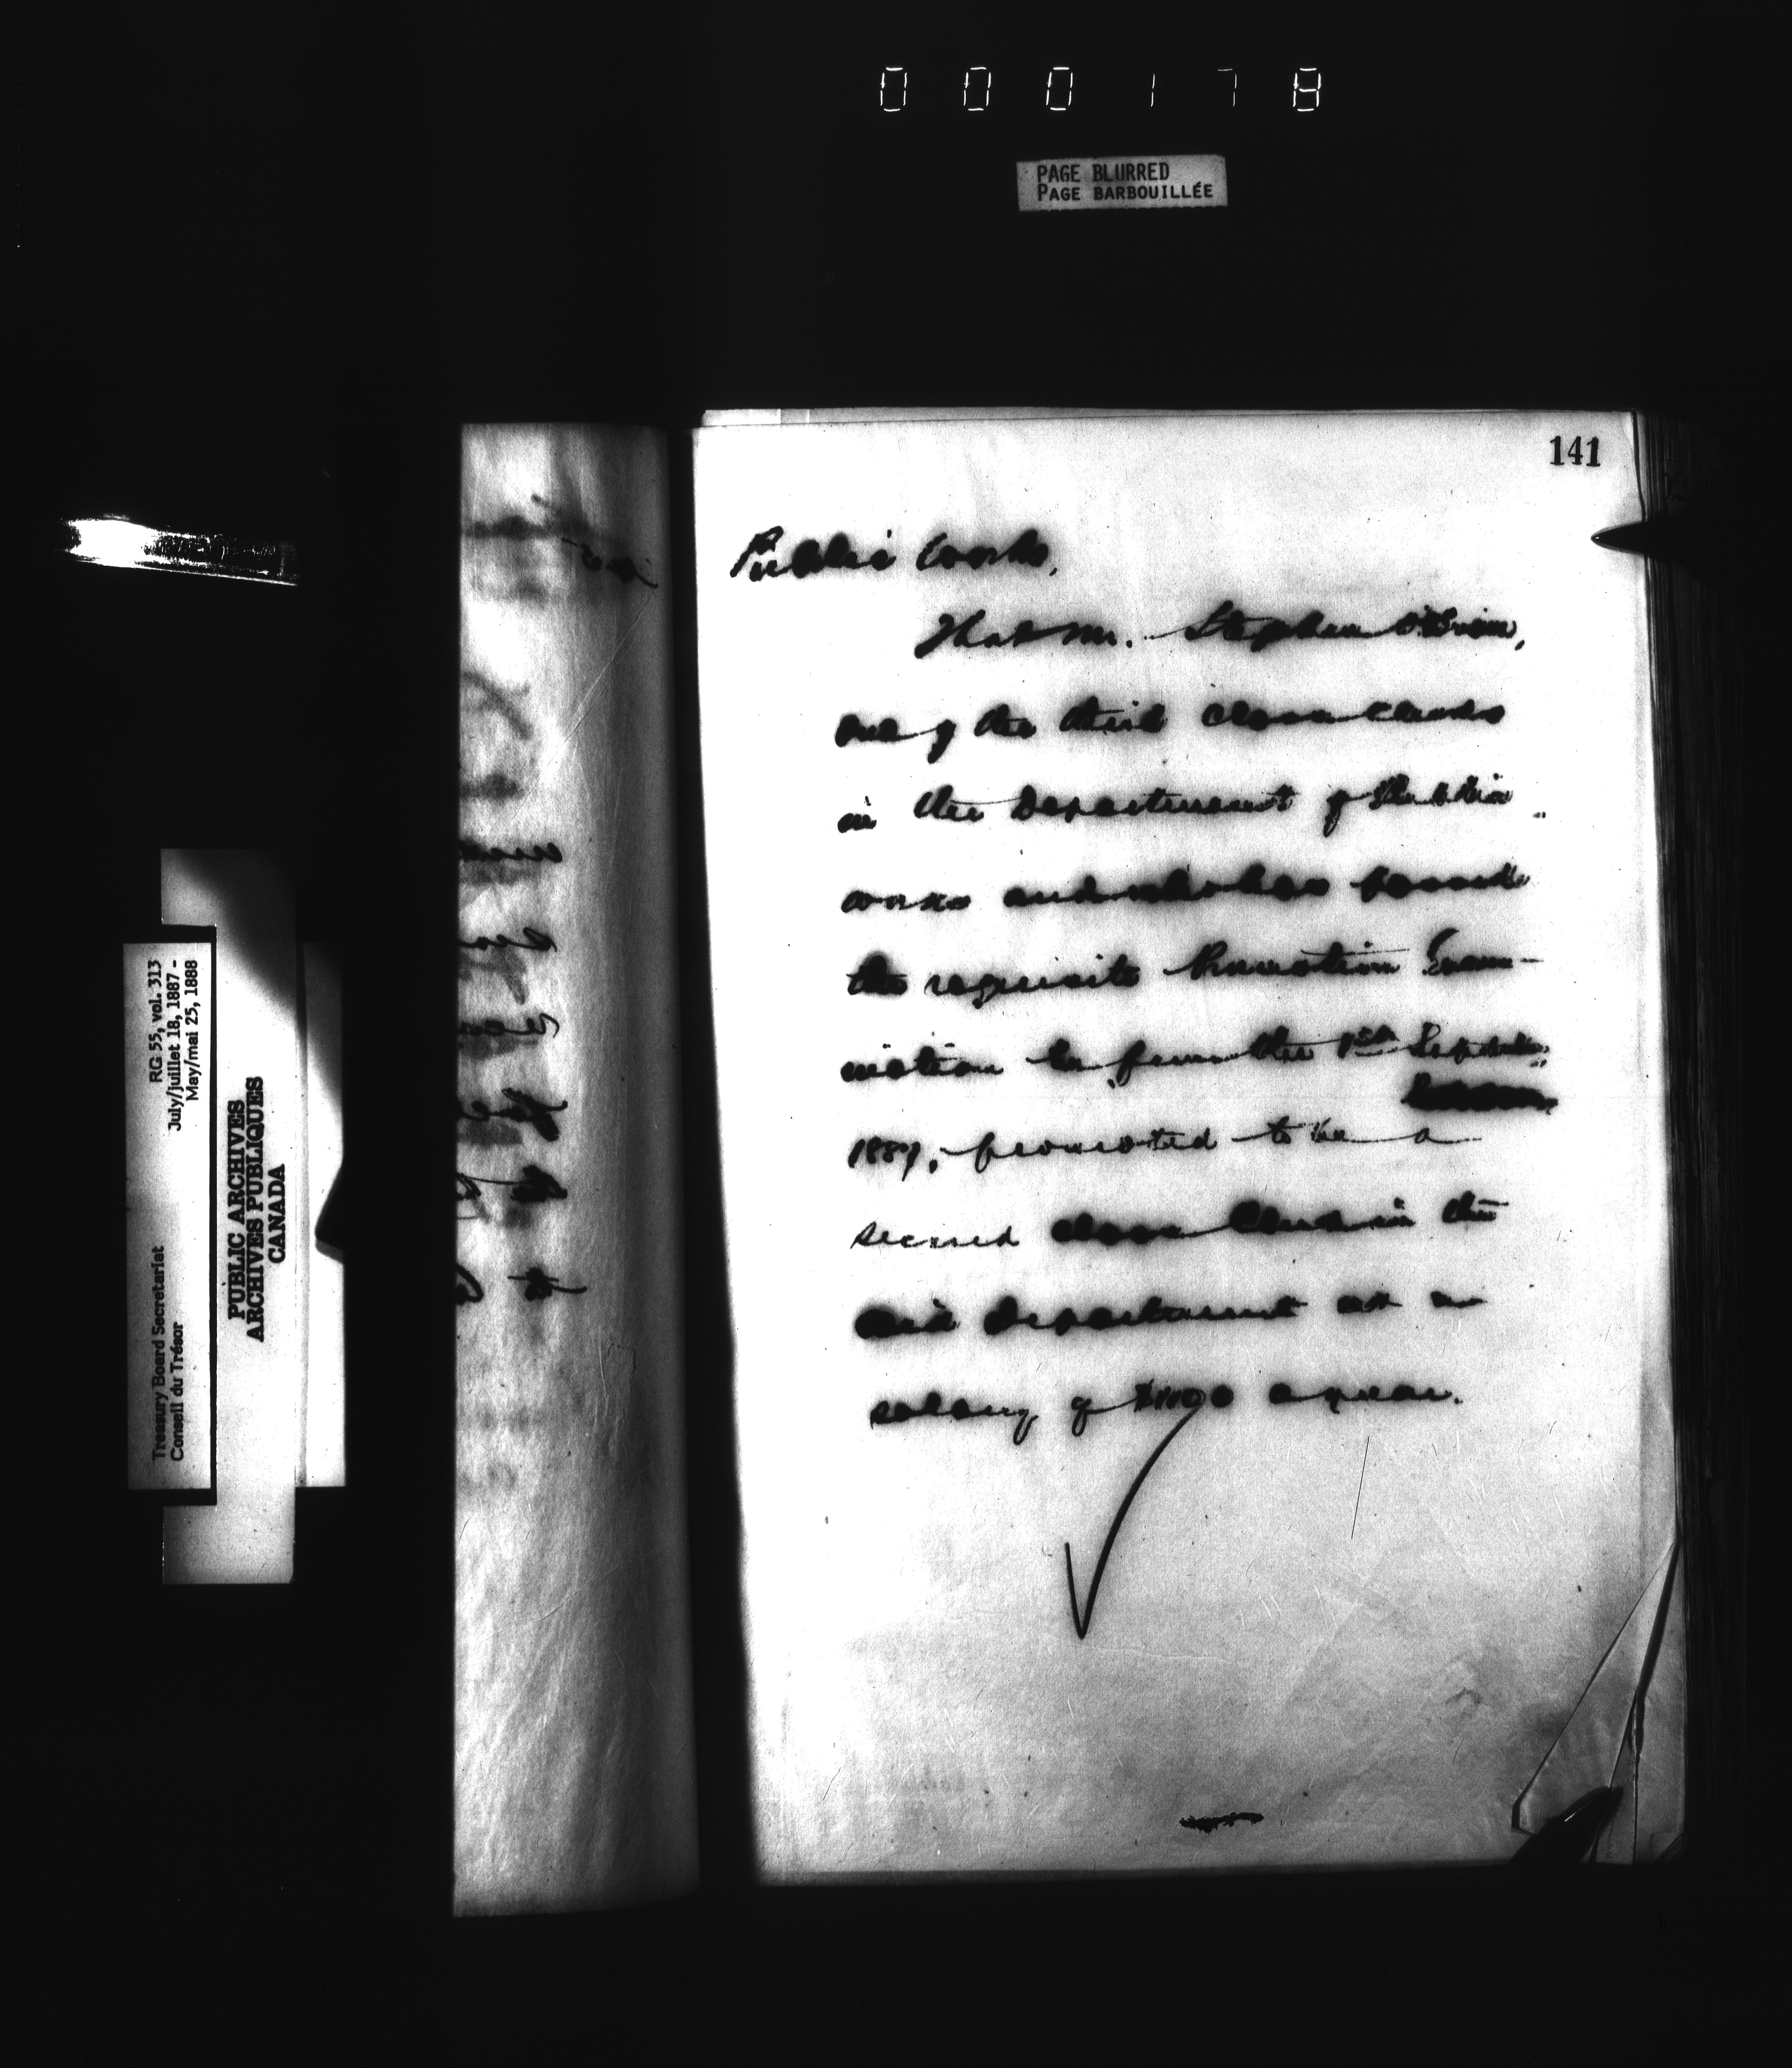 000178
PAGE BLURRED
PAGE BARBOUILLÉE
141
Public Works,
That Mr. Stephen O'Brien,
one of the third class clerks
in the Department of Public
Works and who has passed
the requisite Promotion Exam-
ination be from the 1st September
1887, promoted to be a
second class Clerk in the
said Department at a
salary of $1100 a year.
RG 55, vol. 313
July/juillet 18, 1887 -
May/mai 25, 1888
Treasury Board Secretariat
Conseil du Trésor
PUBLIC ARCHIVES
ARCHIVES PUBLIQUES
CANADA